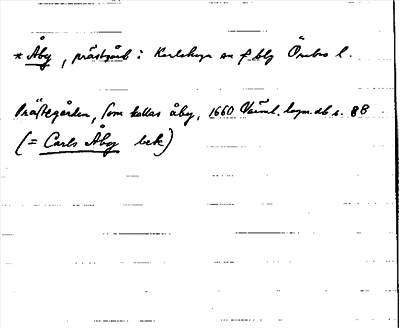 * Åby, prästgård i Karlskoga sn f blg Örebro l.
Prästegården, som kallas åby, 1660 Värml. lagm.db s. 88
(= Carls Åby bek)